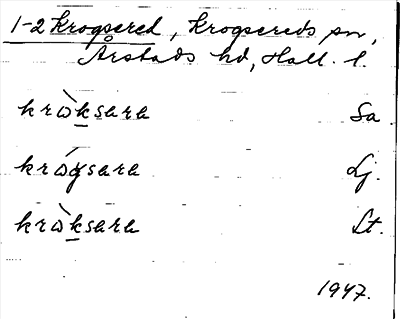 1-2 Krogsered, Krogsereds sn,
Årstads hd, Hall. l.
krὼksara Sa.
krώgsara Lj.
krὼksara Lt.
1947.